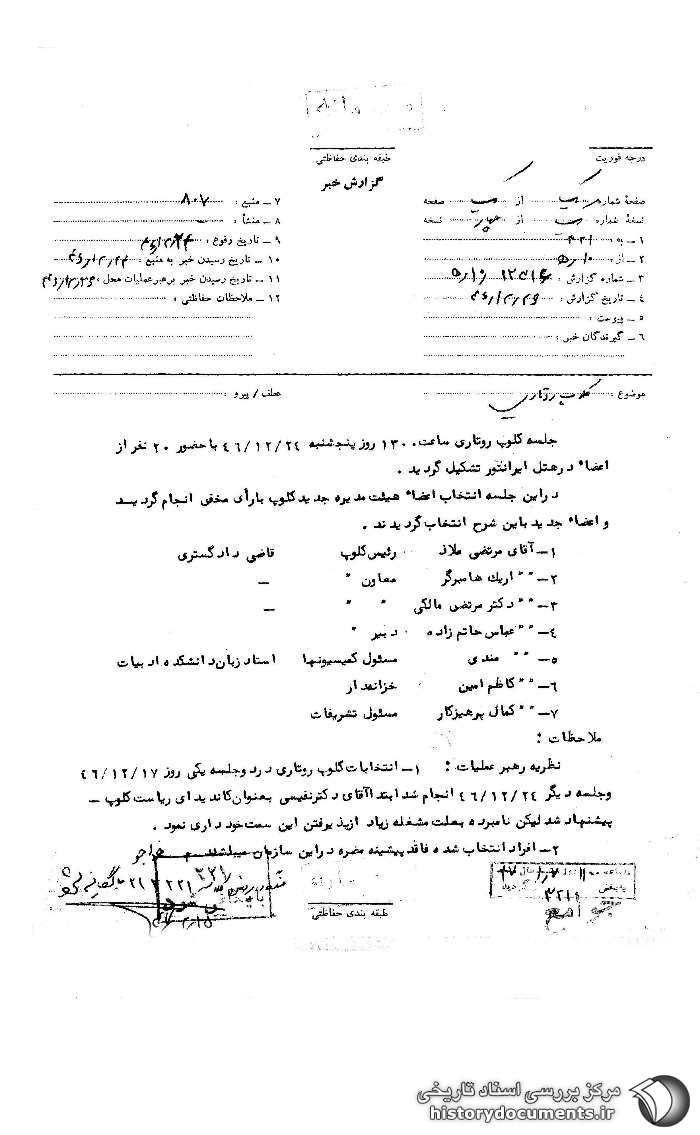 درجه فوریت
طبقه بندی حفاظتی
گزارش خبر
صفحهٔ شماره یک از یک صفحه
نسخهٔ شماره از چهار نسخه
۱ـ به : ۳۴۱
۲ـ از : ۱۰ ﻫ
۳ـ شماره گزارش :
۴ـ تاریخ گزارش :
۵ـ پیوست :
۶ـ گیرندگان خبر :
۷ـ منبع : ۸۰۷
۸ـ منشأ :
۹ـ تاریخ وقوع :
۱۰ـ تاریخ رسیدن خبر به منبع :
۱۱ـ تاریخ رسیدن خبر برهبرعملیات محل :
۱۲ـ ملاحظات حفاظتی :
موضوع : کلوپ روتاری
عطف / پیرو :
جلسه کلوپ روتاری ساعت ۱۳۰۰ روز پنجشنبه ۴۶/۱۲/۲۴ با حضور ۲۰ نفر از
اعضاء در هتل ایرانتور تشکیل گردید .
در این جلسه انتخاب اعضاء هیئت مدیره جدید کلوپ با رأی مخفی انجام گردید
و اعضاء جدید باین شرح انتخاب گردیدند .
۱ـ آقای مرتضی ملاذ رئیس کلوپ قاضی دادگستری
۲ـ " " اریک هامبرگر معاون " ـ
۳ـ " " دکتر مرتضی مالکی " " ـ
۴ـ " " عباس حاتم زاده دبیر "
۵ـ " " مندی مسئول کمیسیونها استاد زبان دانشکده ادبیات
۶ـ " " کاظم امین خزانه‌دار
۷ـ " " کمال پرهیزکار مسئول تشریفات
ملاحظات :
نظریه رهبر عملیات : ۱ـ انتخابات کلوپ روتاری در دو جلسه یکی روز ۴۶/۱۲/۱۷
و جلسه دیگر ۴۶/۱۲/۲۴ انجام شد ابتدا آقای دکتر نفیسی بعنوان کاندیدای ریاست کلوپ ـ
پیشنهاد شد لیکن نامبرده بعلت مشغله زیاد از پذیرفتن این سمت خودداری نمود .
۲ـ افراد انتخاب شده فاقد پیشینه مضره در این سازمان میباشند
۳۲۱
طبقه بندی حفاظتی
مرکز بررسی اسناد تاریخی
historydocuments.ir